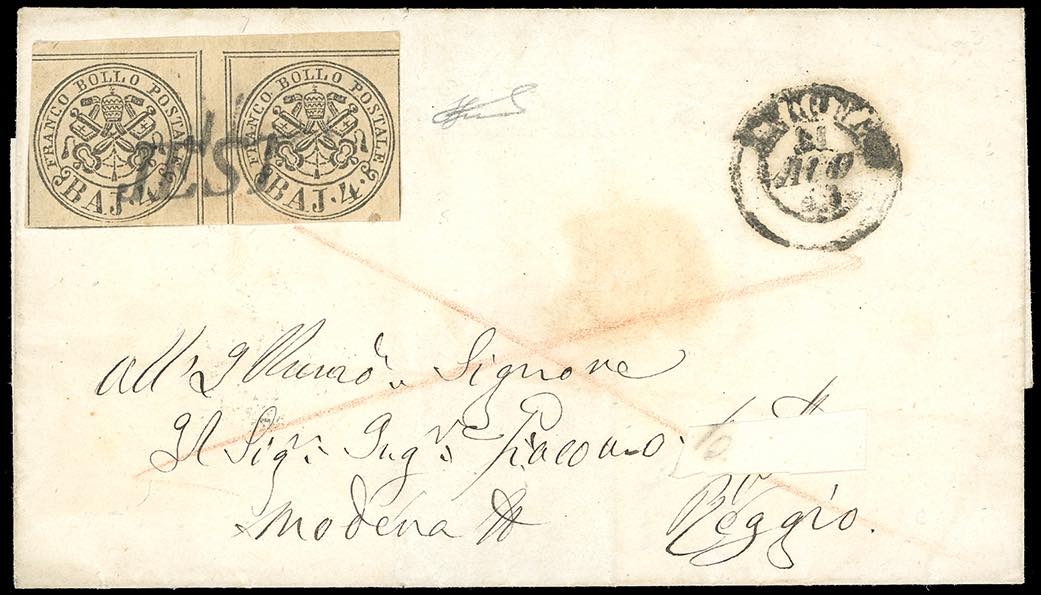 FRANCO BOLLO POSTALE
BAJ. 4.
FRANCO BOLLO POSTALE
BAJ. 4.
JESI
11
AGO
all' Illumo Signore
Il Sigr. Ingr. Giacomo
Modena Reggio.